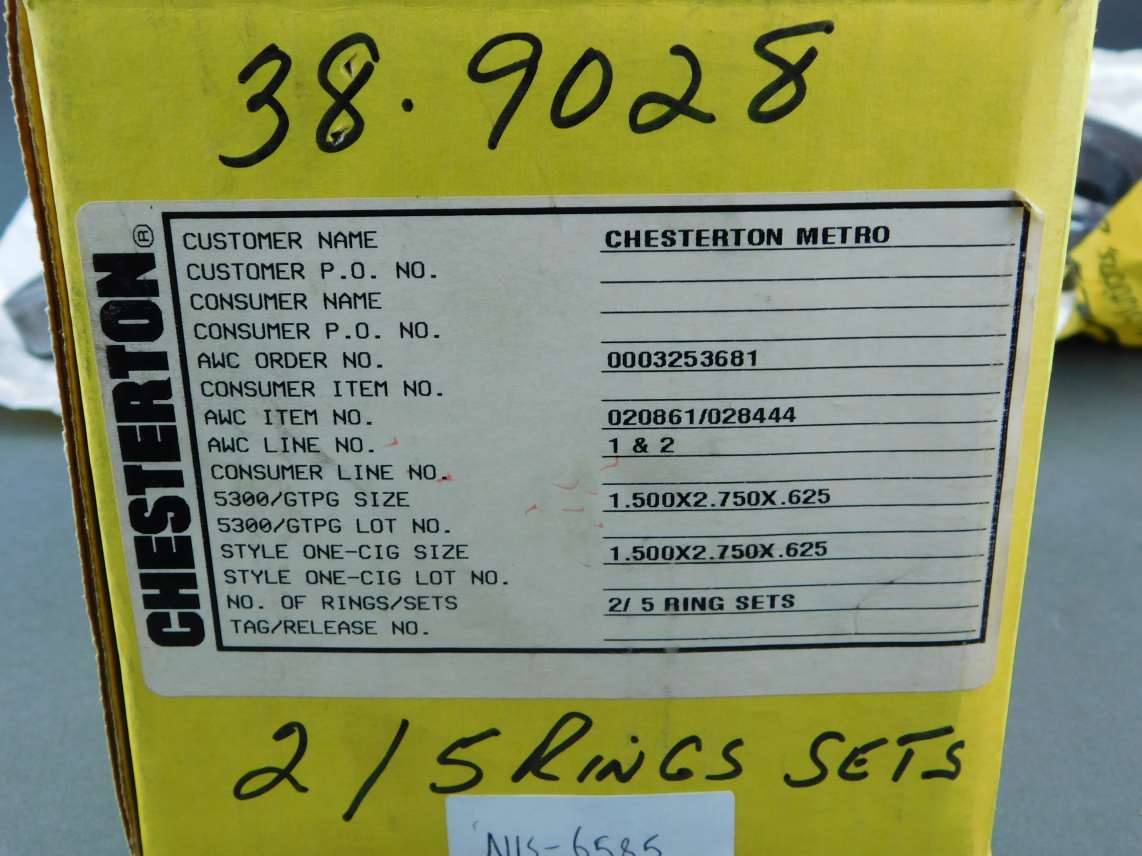 38.9028
CHESTERTON®
CUSTOMER NAME CHESTERTON METRO
CUSTOMER P.O. NO.
CONSUMER NAME
CONSUMER P.O. NO.
AWC ORDER NO. 0003253681
CONSUMER ITEM NO.
AWC ITEM NO. 020861/028444
AWC LINE NO. 1 & 2
CONSUMER LINE NO.
5300/GTPG SIZE 1.500X2.750X.625
5300/GTPG LOT NO.
STYLE ONE-CIG SIZE 1.500X2.750X.625
STYLE ONE-CIG LOT NO.
NO. OF RINGS/SETS 2/ 5 RING SETS
TAG/RELEASE NO.
2/5 RiNGS SETS
-6585